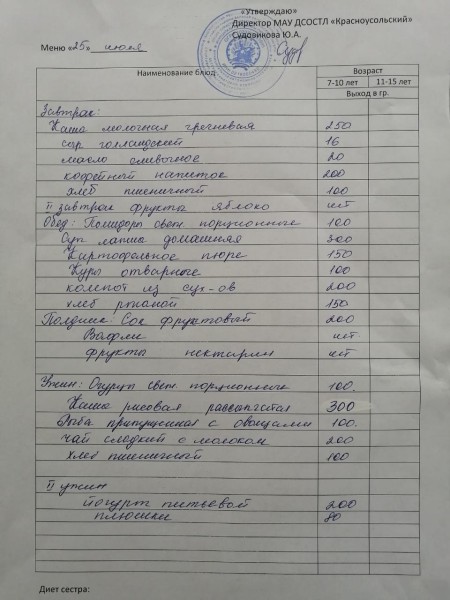 «Утверждаю»
Директор МАУ ДСОСТЛ «Красноусольский»
Судовикова Ю.А.
Меню «25» июля
Наименование блюд Возраст
7-10 лет 11-15 лет
Выход в гр.
Завтрак:
Каша молочная гречневая 250
сыр голландский 16
масло сливочное 20
кофейный напиток 200
хлеб пшеничный 100
II завтрак фрукты яблоко шт
Обед: Помидоры свеж. порционные 100
Суп лапша домашняя 300
Картофельное пюре 150
Куры отварные 100
компот из сух-ов 200
хлеб ржаной 150
Полдник: Сок фруктовый 200
Вафли шт.
фрукты нектарин шт
Ужин: Огурцы свеж. порционные 100.
Каша рисовая рассыпчатая 300
Рыба припущенная с овощами 100.
чай сладкий с молоком 200
хлеб пшеничный 100
II ужин
йогурт питьевой 200
плюшка 80
Диет сестра: